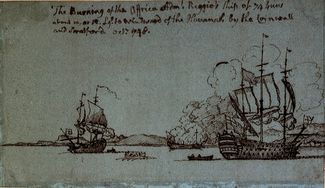 The Burning of the Africa Adm.l Reggio's Ship of 74 Guns
about 11 or 12 Lgs to Windward of the Havanah by the Cornwall
and Strafford Oct 1748.